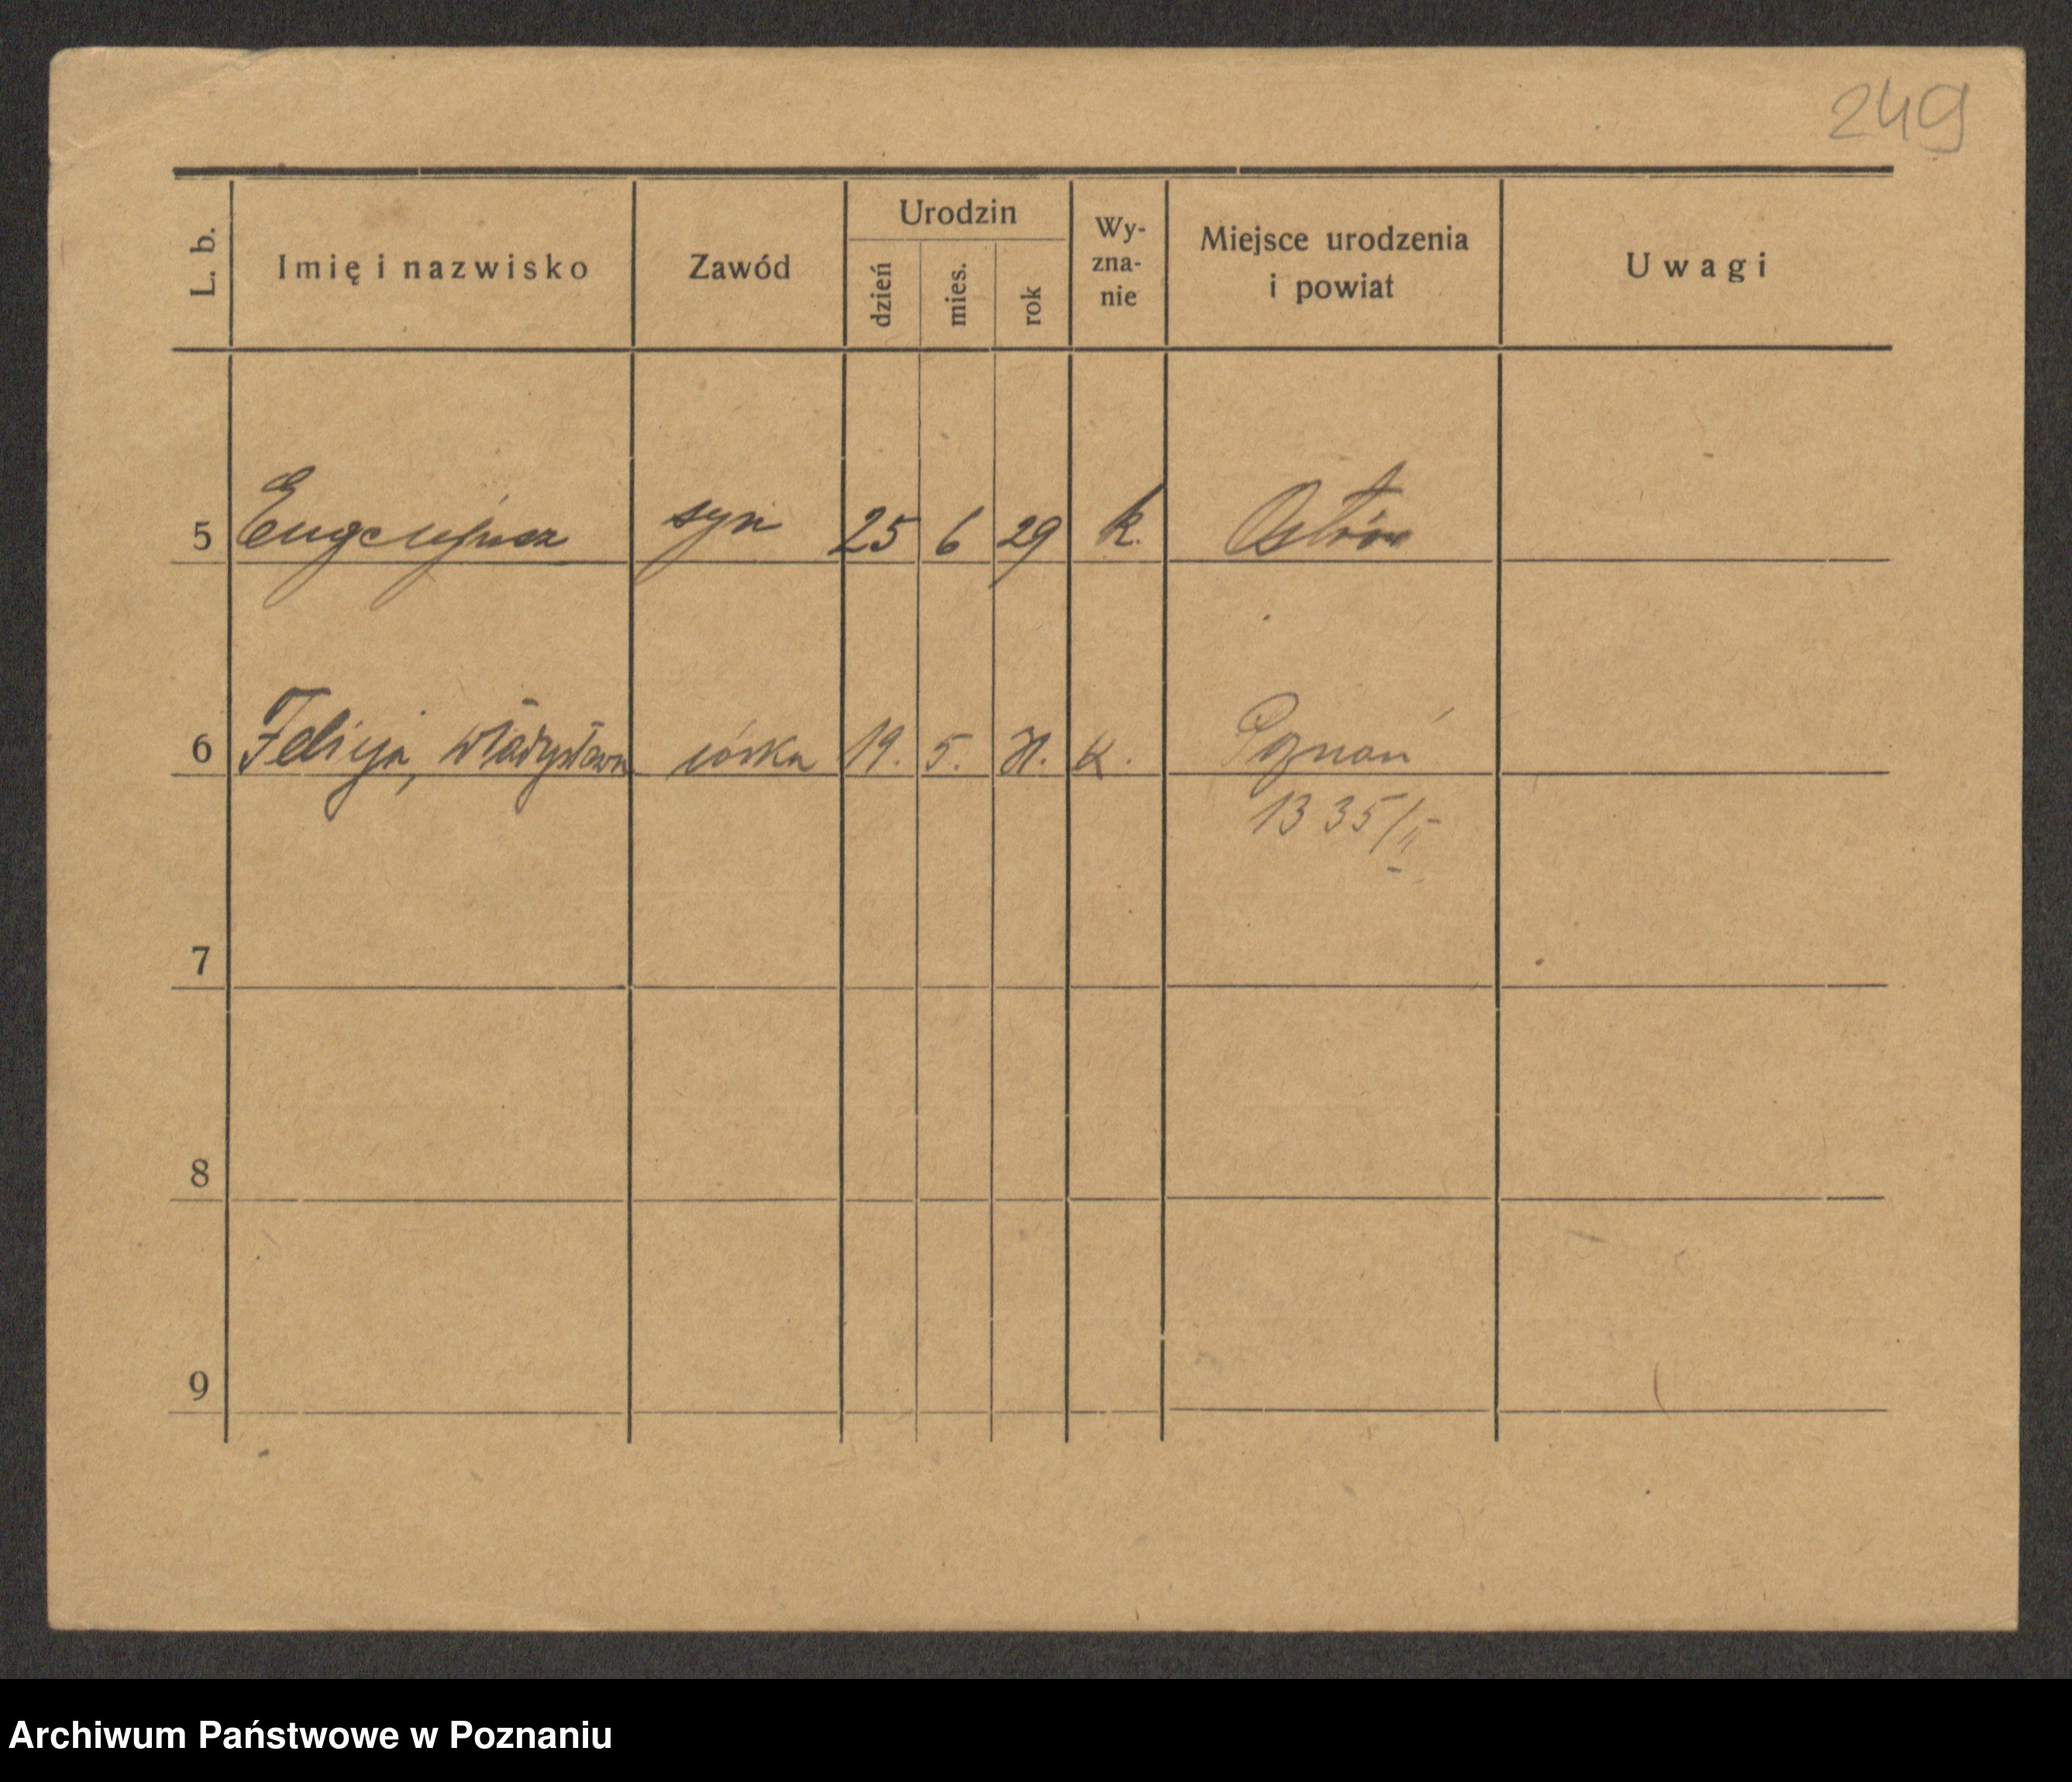 249
L. b. Imię i nazwisko Zawód Urodzin dzień mies. rok Wy-zna-nie Miejsce urodzenia i powiat Uwagi
5 syn 25 6 29 k. Ostrów
6 Felicja, Władysława córka 19. 5. 31. k. Poznań
1335/II
7
8
9
Archiwum Państwowe w Poznaniu